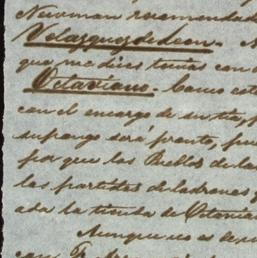 Newman recomendada
Velazquez de Leon. A
que me dices tomes con
Octaviano. Como est
con el encargo de su tia, p
supongo será pronto, pue
por que los Pueblos de la
las partidas de ladrones y
ada la tienda de Octavian
Aunque no es